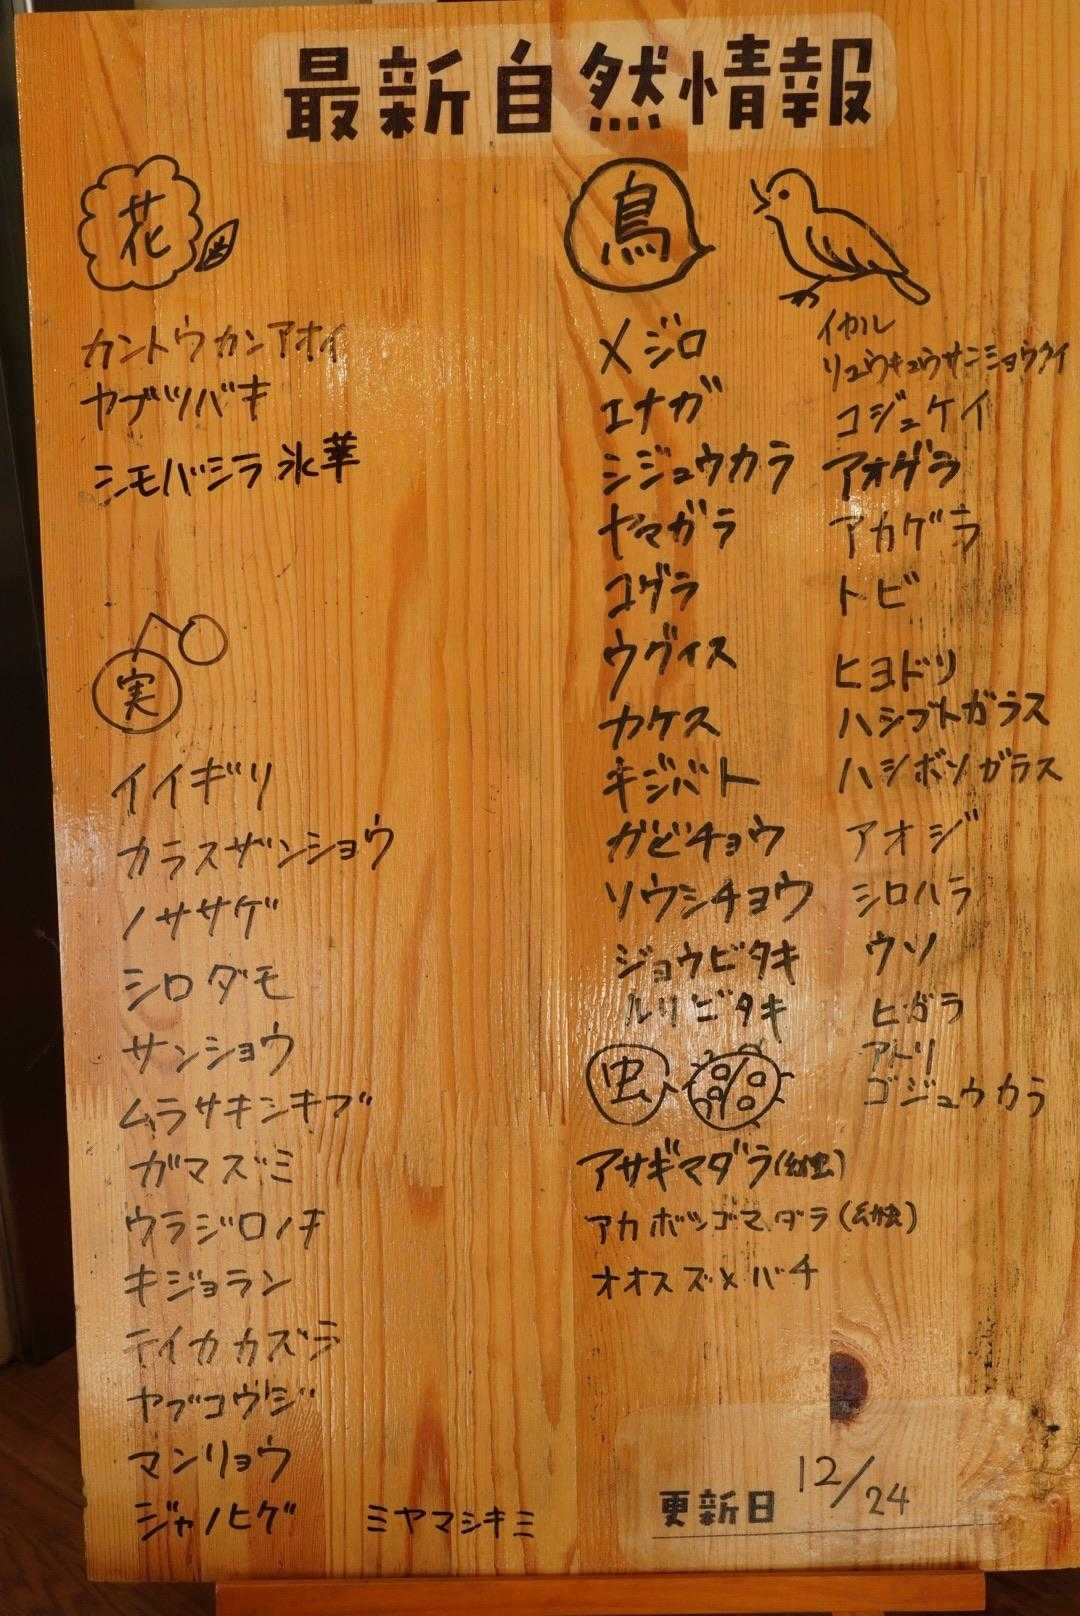 最新自然情報
花
カントウカンアオイ
ヤブツバキ
シモバシラ氷華
実
イイギリ
カラスザンショウ
ノササゲ
シロダモ
サンショウ
ムラサキシキブ
ガマズミ
ウラジロノキ
キジョラン
テイカカズラ
ヤブコウジ
マンリョウ
ジャノヒゲ
ミヤマシキミ
鳥
メジロ
エナガ
シジュウカラ
ヤマガラ
コゲラ
ウグイス
カケス
キジバト
ガビチョウ
ソウシチョウ
ジョウビタキ
ルリビタキ
イカル
リュウキュウサンショウクイ
コジュケイ
アオゲラ
アカゲラ
トビ
ヒヨドリ
ハシブトガラス
ハシボソガラス
アオジ
シロハラ
ウソ
ヒガラ
アトリ
ゴジュウカラ
虫
アサギマダラ(幼虫)
アカボシゴマダラ(幼虫)
オオスズメバチ
更新日 12/24